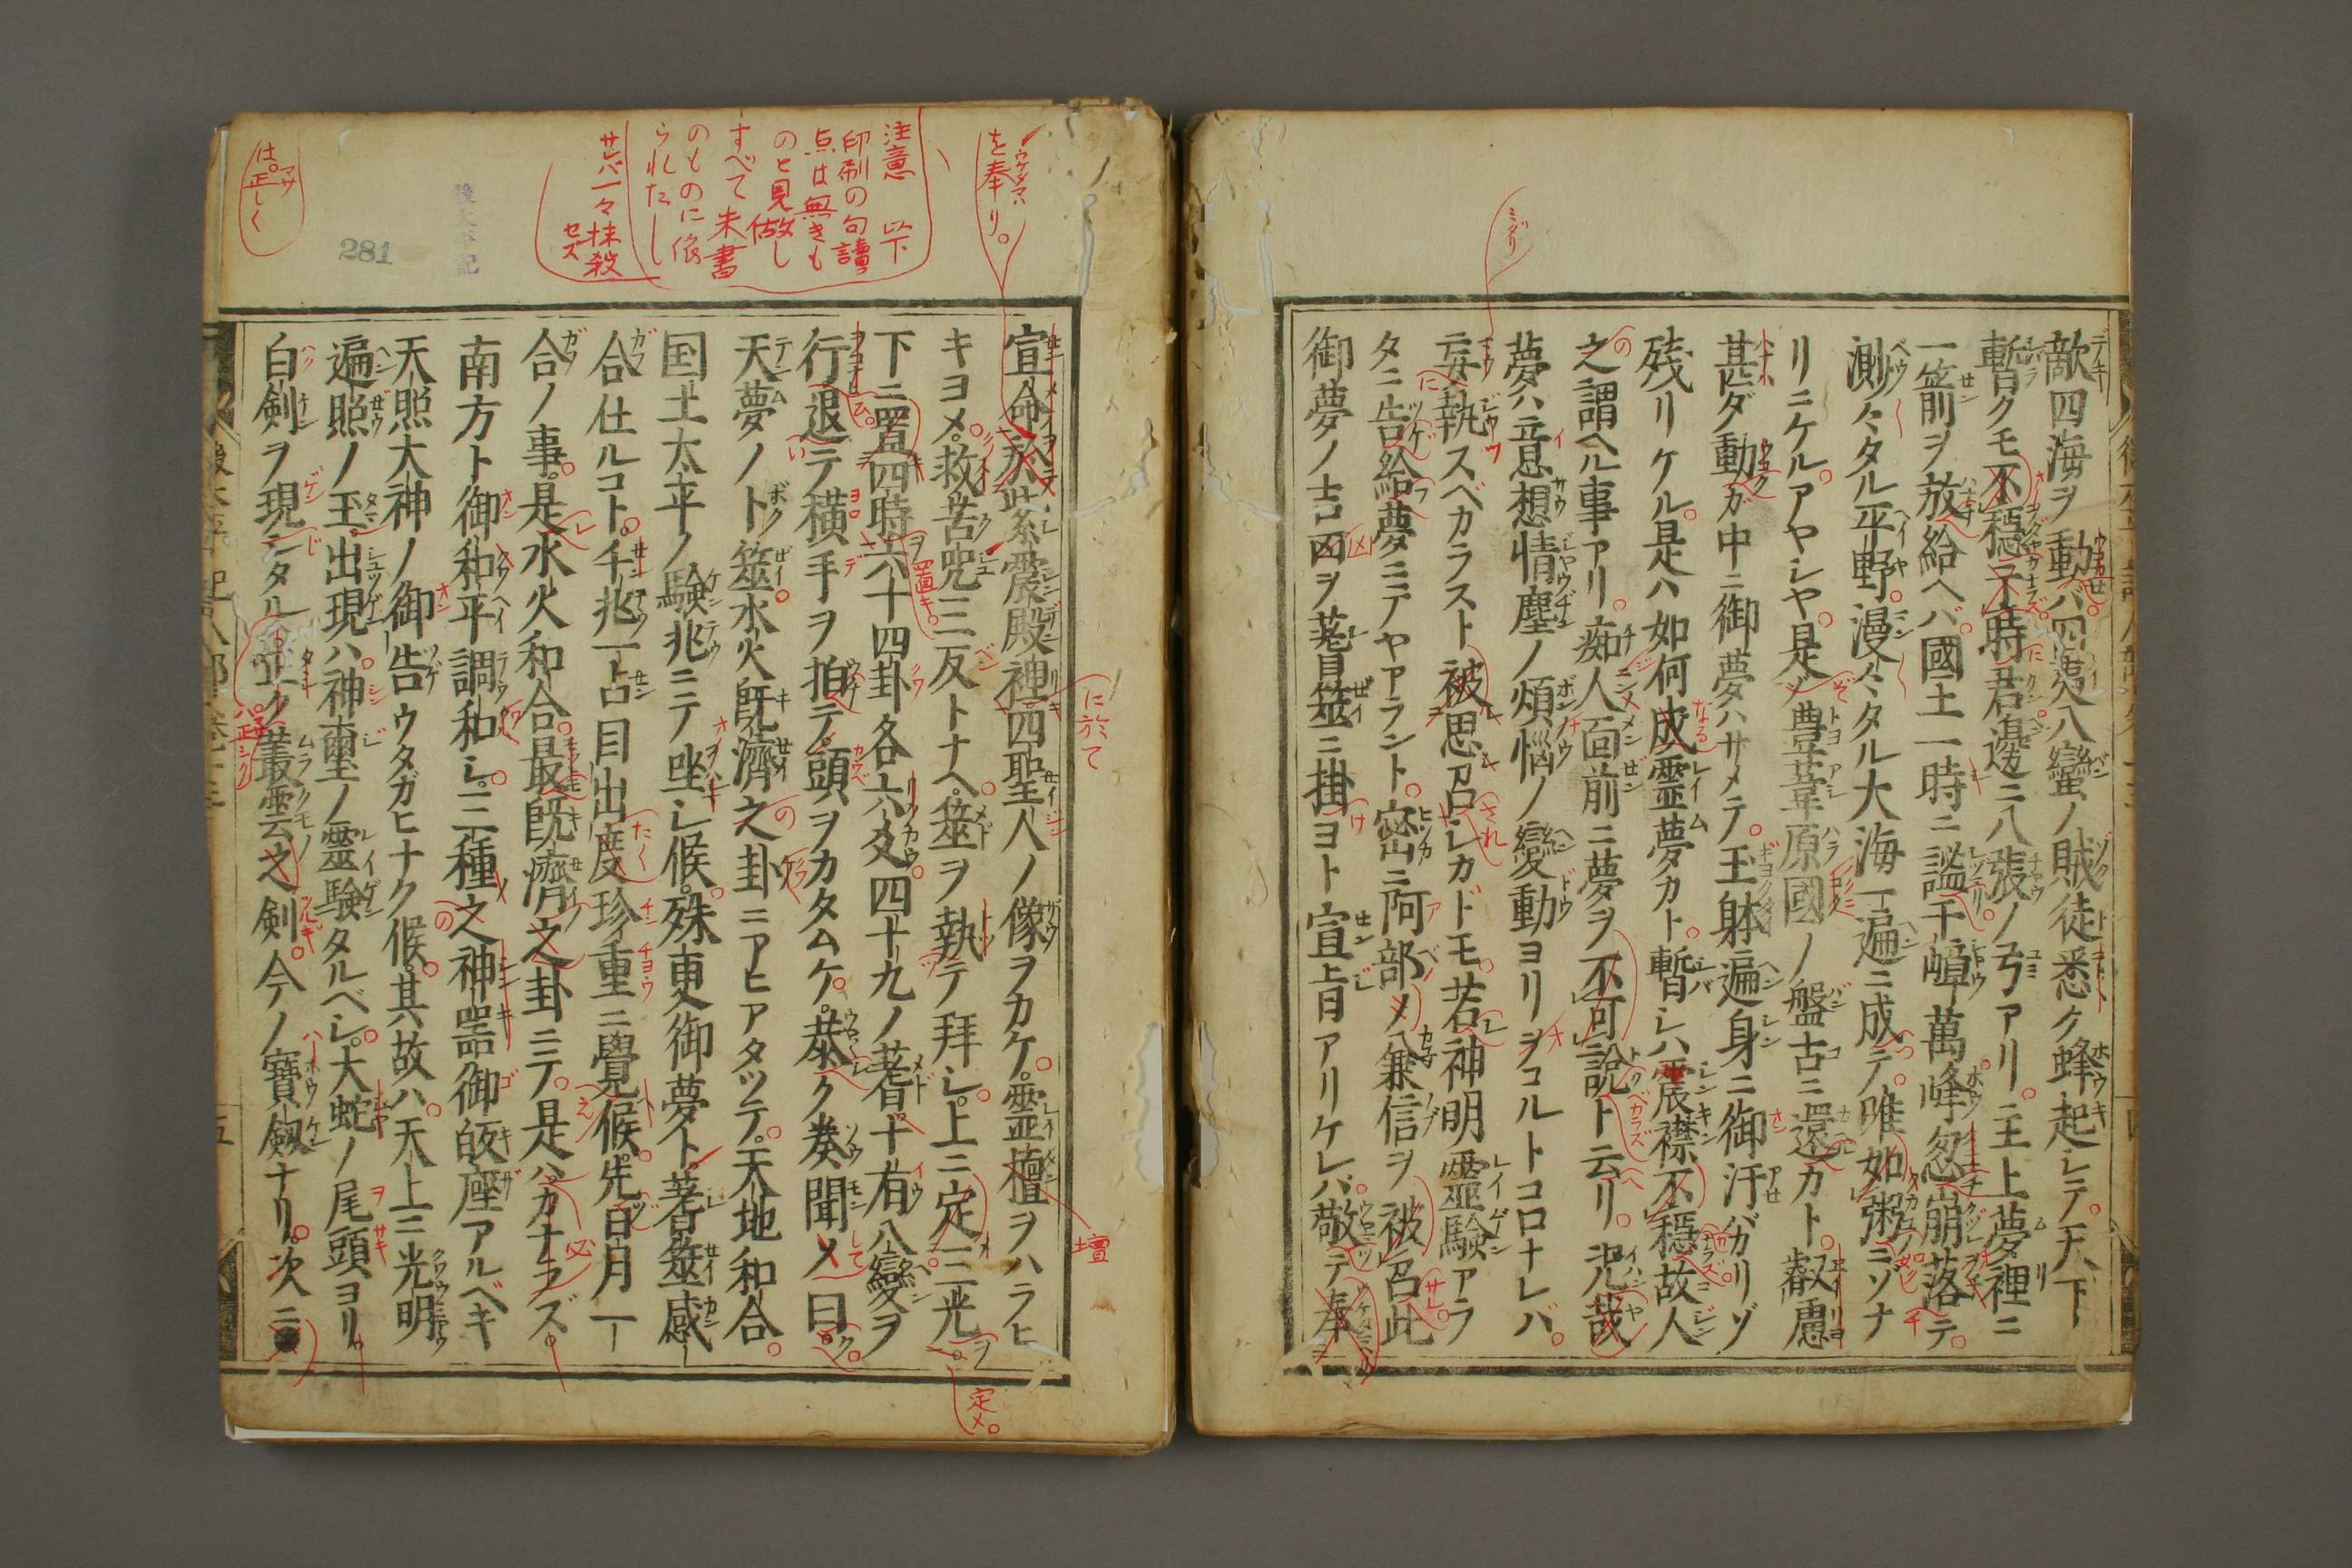 敵四海ヲ動バ四夷八蠻ノ賊徒悉ク蜂起シテ天下
暫クモ不穏于時君邉ニ八張ノ弓アリ主上夢裡ニ
一箭ヲ放給ヘバ國土一時ニ謐千嶂萬峰忽崩落テ
渺々タル平野漫々タル大海一遍ニ成テ唯如粥ニゾナ
リニケルアヤシヤ是ゾ豊葦原國ノ盤古ニ還カト叡慮
甚ダ動ガ中ニ御夢ハサメテ玉躰遍身ニ御汗バカリゾ
残リケル是ハ如何成霊夢カト暫シハ震襟不穏故人
之謂ヘル事アリ痴人面前ニ夢ヲ不可説ト云リ况哉
夢ハ意想情塵ノ煩悩ノ變動ヨリヲコルトコロナレバ
妄執スベカラスト被思召シカドモ若神明霊験アラ
タニ告給夢ニテヤアラント密ニ阿部ノ兼信ヲ被召此
御夢ノ吉凶ヲ蓍筮ニ掛ヨト宣旨アリケレバ敬テ奉
宣命於紫震殿裡四聖人ノ像ヲカケ霊檀ヲハラヒ
キヨメ救苦咒三反トナヘ筮ヲ執テ拜シ上ニ定三光
下ニ置四時六十四卦各六爻四十九ノ蓍十有八變ヲ
行退テ横手ヲ拍テ頭ヲカタムケ恭ク奏聞メ曰
天夢ノト筮水火既濟之卦ニアヒアタツテ天地和合
国土太平ノ験兆ニテ坐シ候殊更御夢ト蓍筮感
合仕ルコト千兆一占目出度珍重ニ覺候先日月一
合ノ事是水火和合最既濟之卦ニテ是ハカナラズ
南方ト御和平調和シ三種之神噐御皈座アルベキ
天照大神ノ御告ウタガヒナク候其故ハ天上ニ光明
遍照ノ玉出現ハ神璽ノ霊験タルベシ大蛇ノ尾頭ヨリ
白剣ヲ現シタル正ク叢雲之剣今ノ寶劔ナリ次ニ
ミダリ
ウケタマハ
を奉り。
注意 以下
印刷の句讀
点は無きも
のと見做し
すべて朱書
のものに依
られたし
サレバ一々抹殺
セズ
後太平記
281
は。正しく
に於て
壇
定メ。